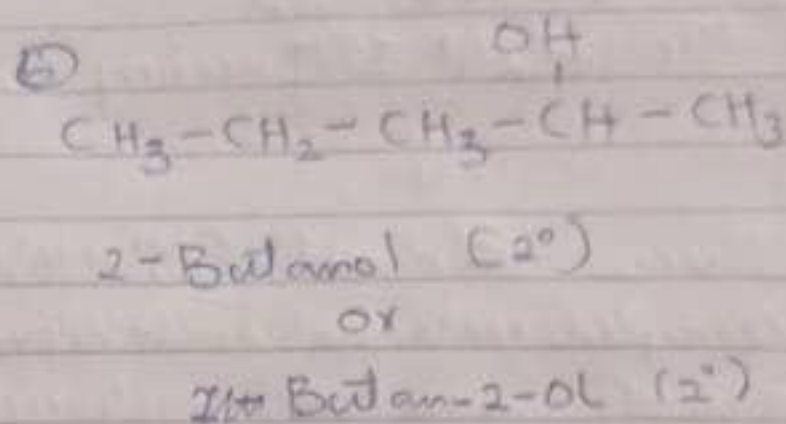 ⑤ OH
CH₃-CH₂-CH₃-CH-CH₃
2-Butanol (2°)
or
Butan-2-OL (2°)